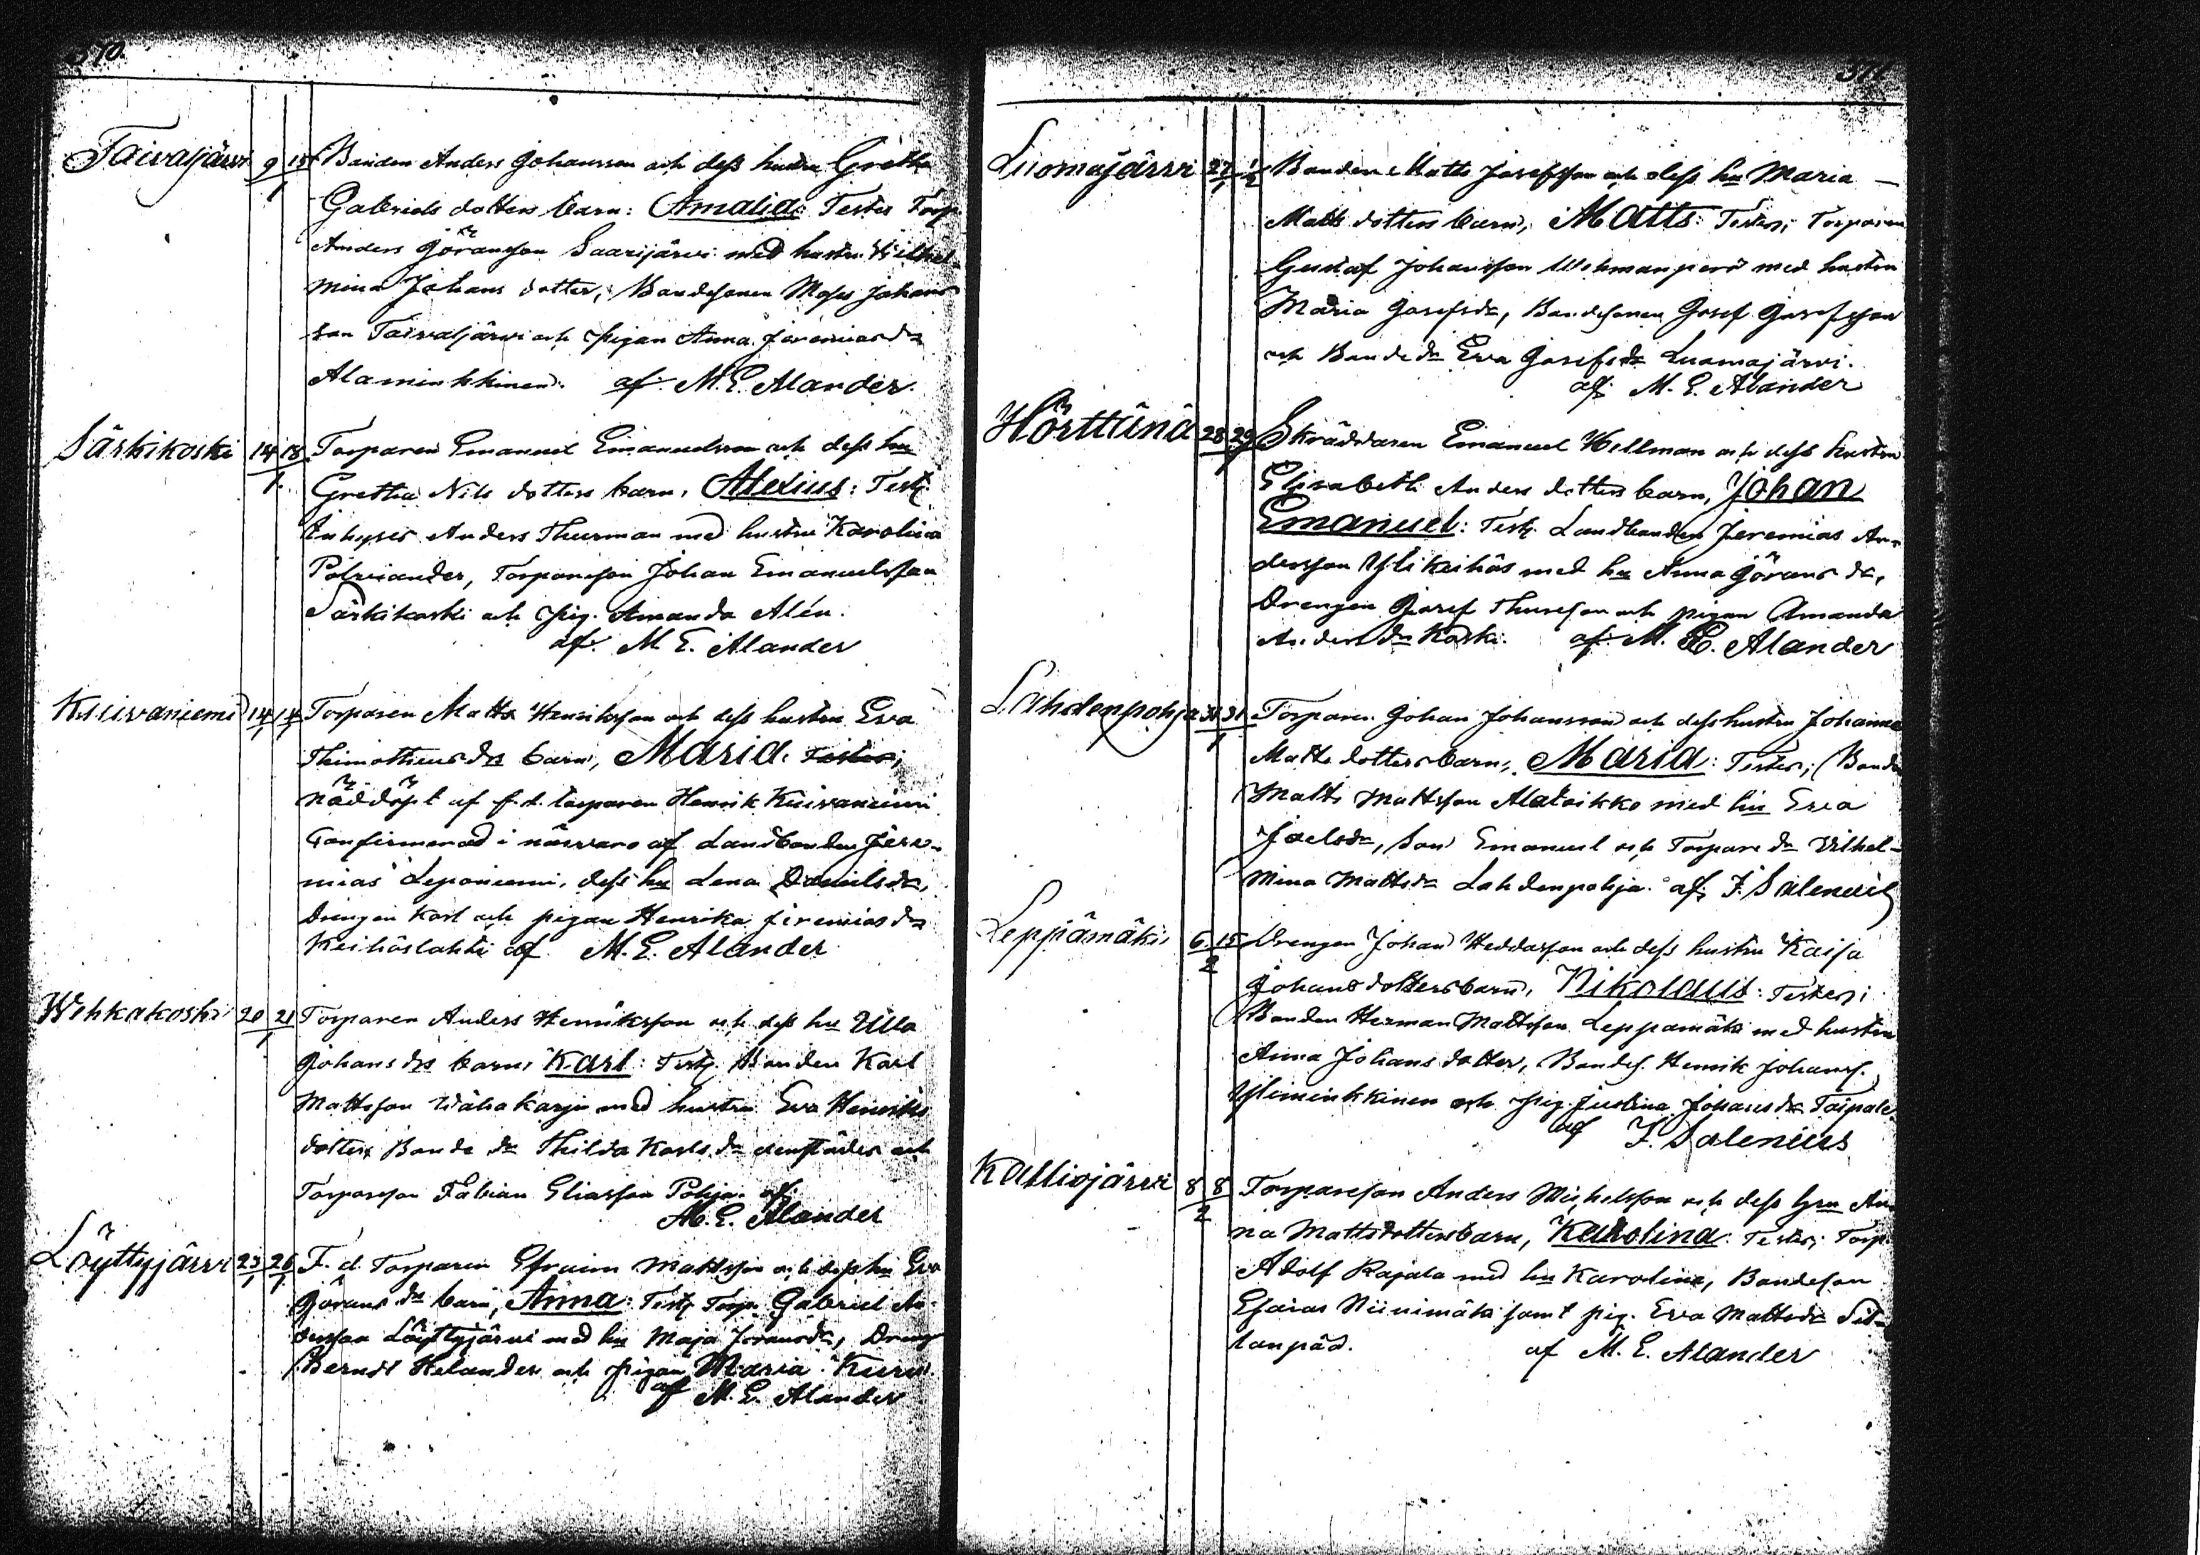 370.
Taivaljärvi 9 13/1 Bonden Anders Johansson och dess hustru Gretha
Gabriels dotters barn: Amalia: Testes Torp
Anders Göransson Saarijärvi med hustru Vilhel-
mina Johans dotter, Bondesonen Moses Johans
son Taivaljärvi och Pigan Anna Jeremiasdr
Alaminkkinen. af M. E. Alander.
Särkikoski 14 18/1 Torparen Emanuel Emanuelsson och dess hu
Gretha Nils dotters barn, Alexius: Test.
Inhyses Anders Thurman med hustru Karolina
Polviander, Torpareson Johan Emanuelsson
Särkikoski och Pig. Amanda Alén.
af. M. E. Alander
Kuivaniemi 14 14/1 Torparen Matts Henriksson och dess hustru Eva
Thimotheus drs barn, Maria. Testes;
nöddöpt af f.d. torparen Henrik Kuivaniemi
Confirmerad i närvaro af Landbonden Jere-
mias Leponiemi, dess hu Lena Danielsdr,
Drengen Karl och pigan Henrika Jeremiasdr
Keihäslahti af M. E. Alander
Wehkakoski 20 21/1 Torparen Anders Henriksson och dess hu Ulla
Johans drs barn, Karl: Test. Bonden Karl
Mattsson Wähäkarju med hustru Eva Henriks
dotter Bonde dr Thilda Karls dr och
Torpareson Fabian Eliasson Pohja. af
M. E. Alander
Löyttyjärvi 23 26/1 F. d. Torparen Efraim Mattsson och dess hu Eva
Görans dr barn, Anna: Test. Torp. Gabriel An-
dersson Löyttyjärvi med hu Maja Joransdr, Dreng
Berndt Helander och Pigan Maria
af M. E. Alander
371
Luomajärvi 27/1 1/2 Bonden Matts Josefsson och dess hu Maria —
Matts dotters barn, Matts: Testes; Torparen
Gustaf Johansson Uhmanperä med hustru
Maria Josefsdr, Bondesonen Josef Josefsson
och Bonde dr Eva Josefsdr Luomajärvi.
af M. E. Alander
Hörttänä 28 29/1 Skräddaren Emanuel Hellman och dess hustru
Elisabeth Anders dotters barn, Johan
Emanuel: Test. Landbonden Jeremias An-
dersson Ylikeihäs med hu Anna Görans dr,
Drengen Josef Thuresson och pigan Amanda
Anders dr Koski. af M. E. Alander
Lahdenpohja 31/1 Torparen Johan Johansson och dess hustru Johanna
Matts dotters barn, Maria: Testes; Bonden
Matts Mattsson Alatoikko med hu Eva
Joelsdr, Son Emanuel och Torpare dr Vilhel-
mina Mattsdr Lahdenpohja. af F. Salenius
Leppämäki 6 15/2 Drengen Johan Heddasson och dess hustru Kaisa
Johans dotters barn, Nikolaus: Testes;
Bonden Herman Mattsson Leppämäki med hustru
Anna Johans dotter, Bondes. Henrik Johanss.
Yliminkkinen och Pig. Justina Johansdr Taipale.
af F. Salenius
Kalliojärvi 8 8/2 Torpareson Anders Michelsson och dess hru An-
na Mattsdotters barn, Karolina: Testes; Torp.
Adolf Rajala med hu Karolina, Bondeson
Esaias Niinimäki samt pig. Eva Mattsdr Sil-
lanpää. af M. E. Alander